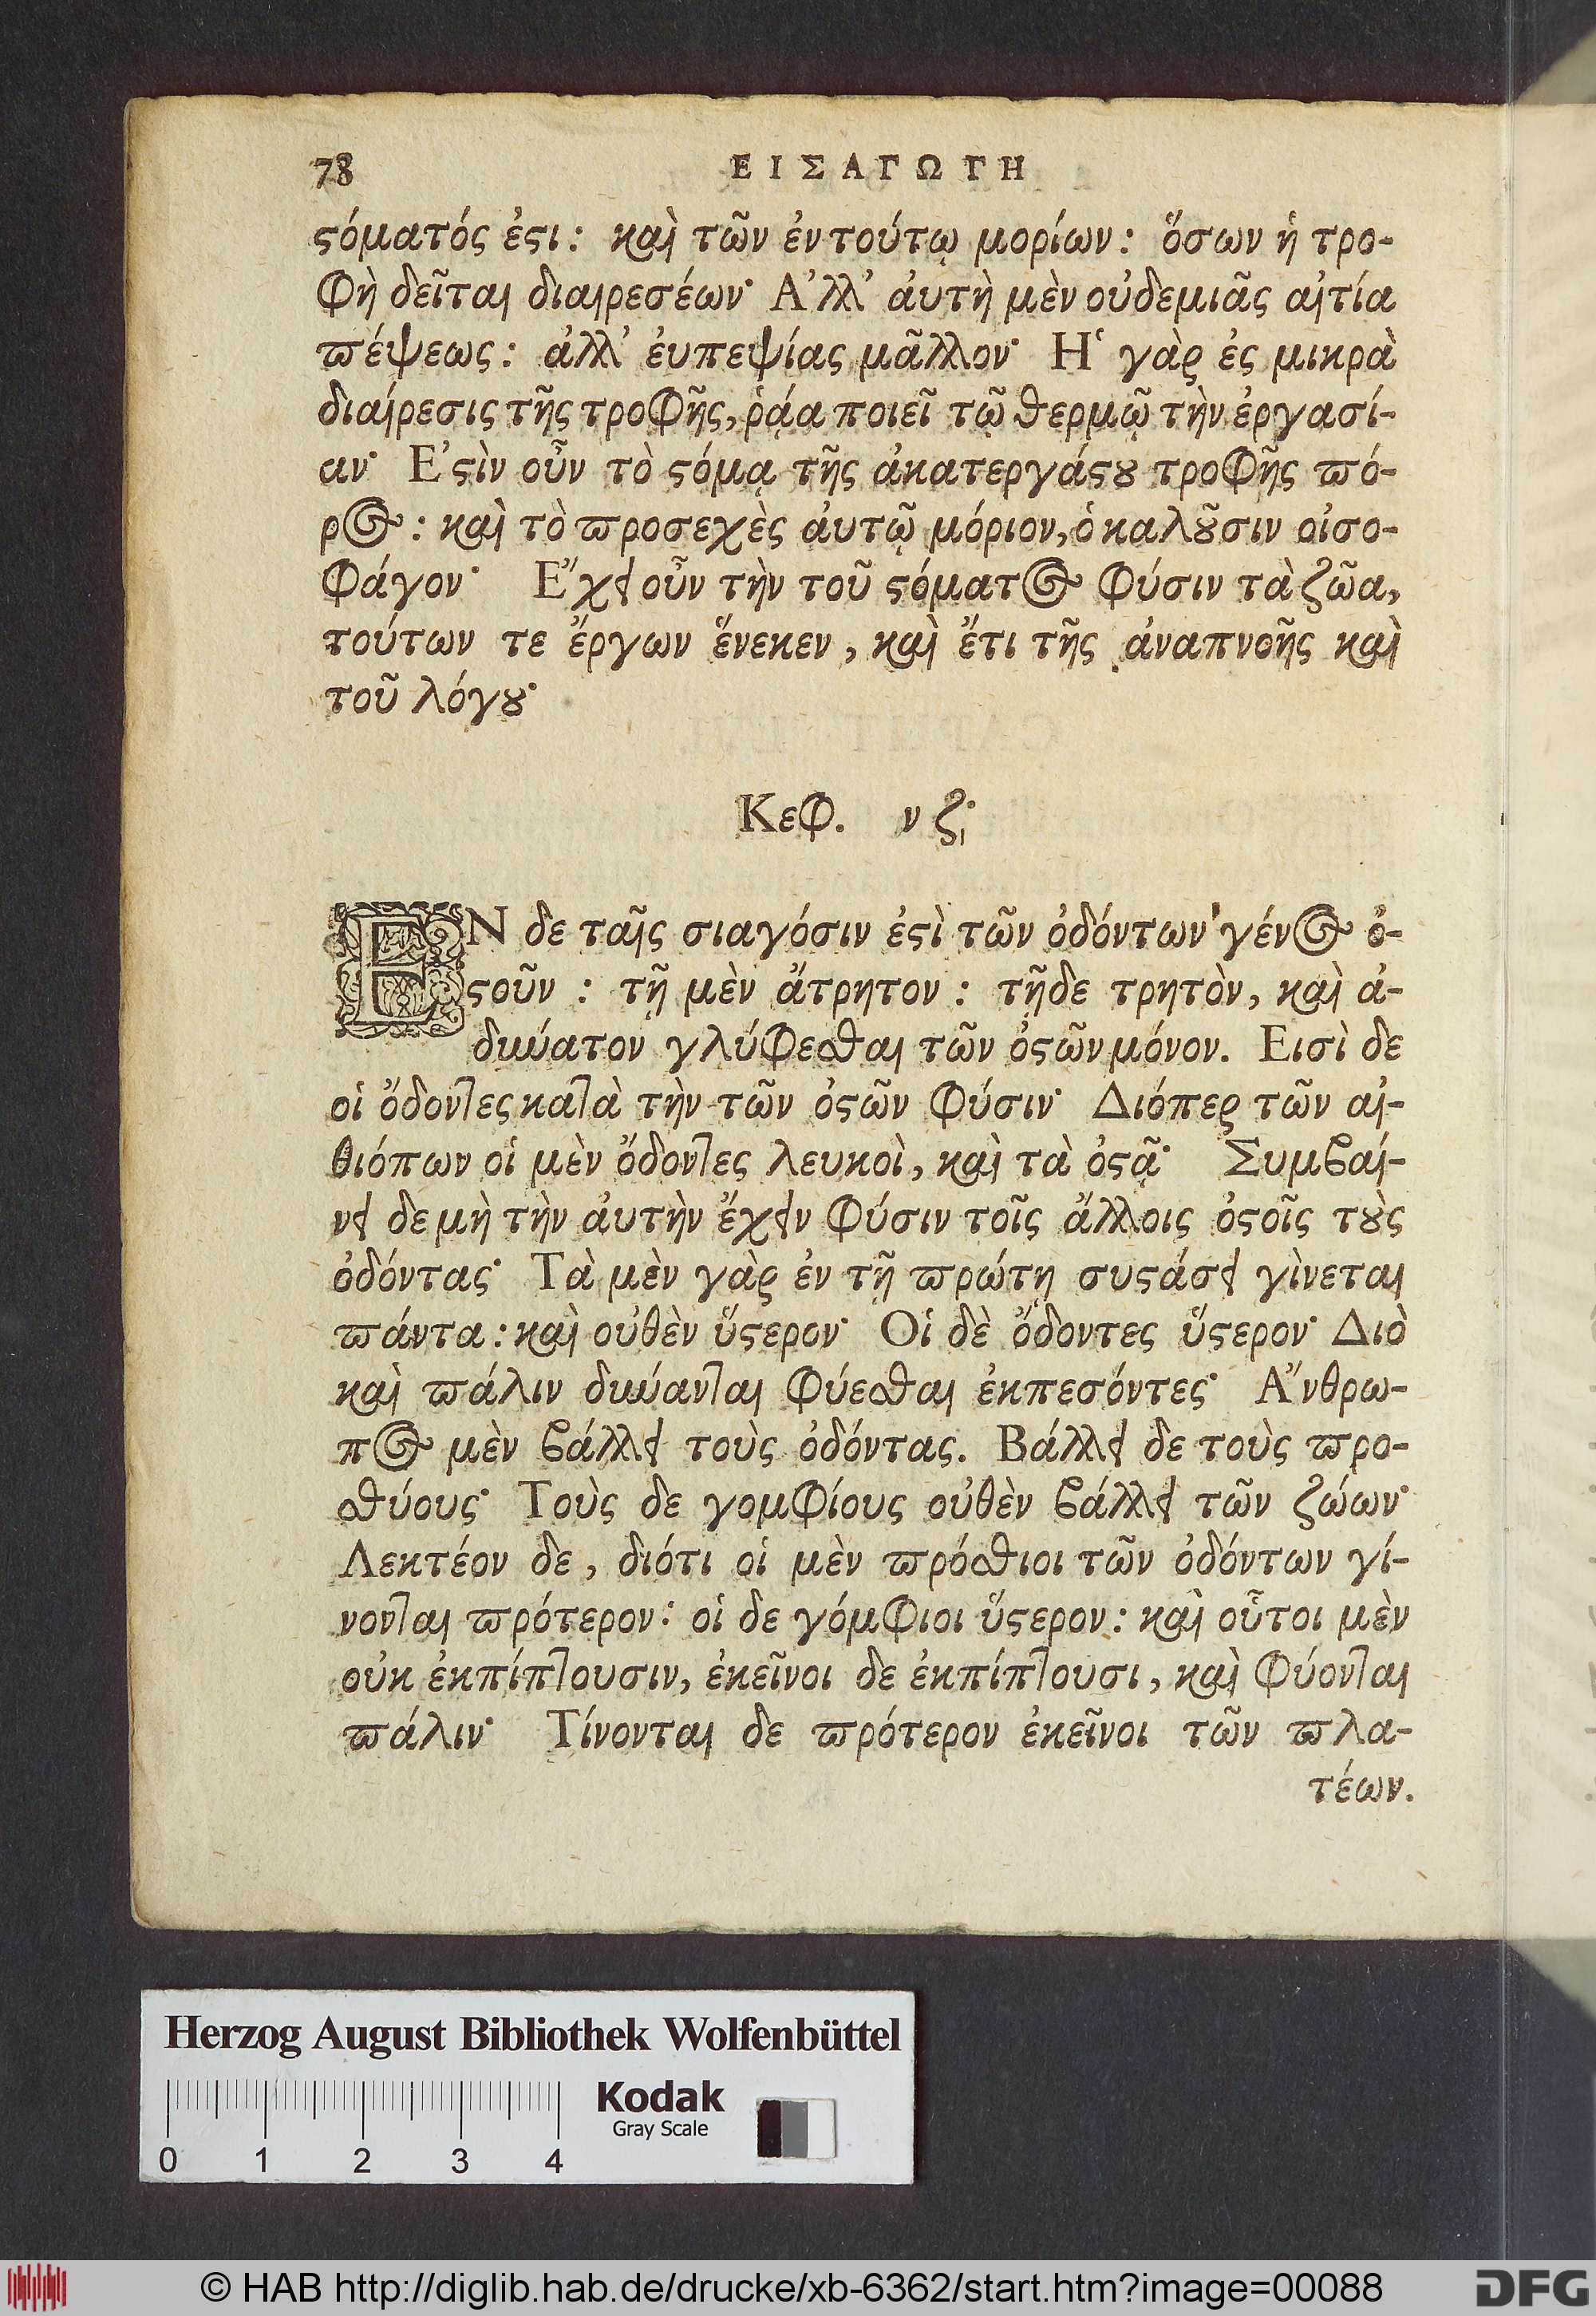 78 ΕΙΣΑΓΩΓΗ
ϛόματός ἐϛι: καὶ τῶν ἐν τούτῳ μορίων: ὅσων ἡ τρο-
φὴ δεῖται διαιρεσέων· Ἀλλ’ ἀυτὴ μὲν οὐδεμιᾶς αἰτία
ϖέψεως: ἀλλ’ ἐυπεψίας μᾶλλον· Ἡ γὰρ ἐς μικρὰ
διαίρεσις τῆς τροφῆς, ῥᾴα ποιεῖ τῷ θερμῷ τὴν ἐργασί-
αν· Ἐϛὶν οὖν τὸ ϛόμα τῆς ἀκατεργάϛȣ τροφῆς ϖό-
ρος: καὶ τὸ ϖροσεχὲς ἀυτῷ μόριον, ὁ καλȣ͂σιν οἰσο-
φάγον· Ἔχει οὖν τὴν τοῦ ϛόματος φύσιν τὰ ζῶα,
τούτων τε ἔργων ἕνεκεν, καὶ ἔτι τῆς ἀναπνοῆς καὶ
τοῦ λόγȣ·
Κεφ. νζ·
ΕΝ δε ταῖς σιαγόσιν ἐϛὶ τῶν ὀδόντων γένος ὀ-
ϛοῦν: τῇ μὲν ἄτρητον: τῇδε τρητὸν, καὶ ἀ-
δύνατον γλύφεσθαι τῶν ὀϛῶν μόνον. Εισὶ δε
οἱ ὄδοντες κατὰ τὴν τῶν ὀϛῶν φύσιν· Διόπερ τῶν αἰ-
θιόπων οἱ μὲν ὄδοντες λευκοὶ, καὶ τὰ ὀϛᾷ· Συμβαί-
νει δε μὴ τὴν ἀυτὴν ἔχειν φύσιν τοῖς ἄλλοις ὀϛοῖς τȣ̀ς
ὀδόντας· Τὰ μὲν γὰρ ἐν τῇ ϖρώτῃ συϛάσει γὶνεται
ϖάντα: καὶ οὐθὲν ὕϛερον· Οἱ δὲ ὄδοντες ὕϛερον· Διὸ
καὶ ϖάλιν δύνανται φύεσθαι ἐκπεσόντες· Ἄνθρω-
πος μὲν βάλλει τοὺς ὀδόντας. Βάλλει δε τοὺς ϖρο-
σθύους· Τοὺς δε γομφίους οὐθὲν βάλλει τῶν ζώων·
Λεκτέον δε, διότι οἱ μὲν ϖρόσθιοι τῶν ὀδόντων γί-
νονται ϖρότερον: οἱ δε γόμφιοι ὕϛερον: καὶ οὗτοι μὲν
οὐκ ἐκπίπτουσιν, ἐκεῖνοι δε ἐκπίπτουσι, καὶ φύονται
ϖάλιν· Γίνονται δε ϖρότερον ἐκεῖνοι τῶν ϖλα-
τέων.
Herzog August Bibliothek Wolfenbüttel
Kodak
Gray Scale
0 1 2 3 4
© HAB http://diglib.hab.de/drucke/xb-6362/start.htm?image=00088
DFG